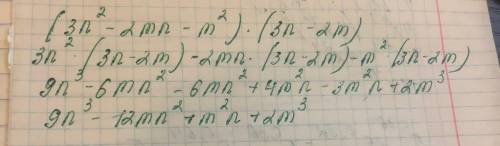 (3n² - 2mn - m²) · (3n - 2m)
3n² · (3n - 2m) - 2mn · (3n - 2m) - m² · (3n - 2m)
9n³ - 6mn² - 6mn² + 4m²n - 3m²n + 2m³
9n³ - 12mn² + m²n + 2m³